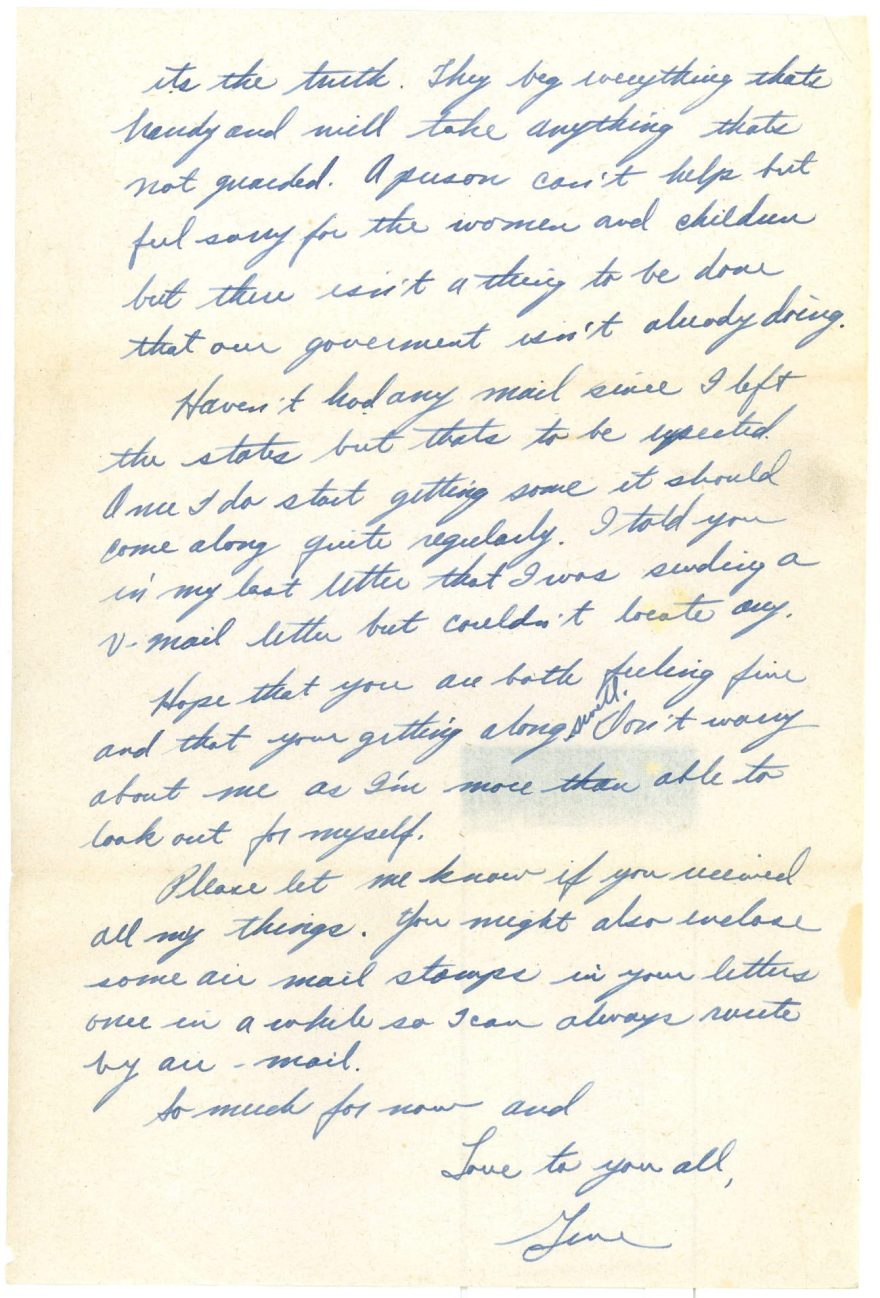 its the truth. They beg everything thats
handy and will take anything thats
not guarded. A person can't help but
feel sorry for the women and children
but there isn't a thing to be done
that our goverment isn't already doing.
Haven't had any mail since I left
the states but thats to be expected.
Once I do start getting some it should
come along quite regularly. I told you
in my last letter that I was sending a
V-mail letter but couldn't locate any.
Hope that you are both feeling fine
and that your getting along swell. Don't worry
about me as I'm more than able to
look out for myself.
Please let me know if you received
all my things. You might also enclose
some air mail stamps in your letters
once in a while so I can always write
by air-mail.
So much for now and
Love to you all,
Gene